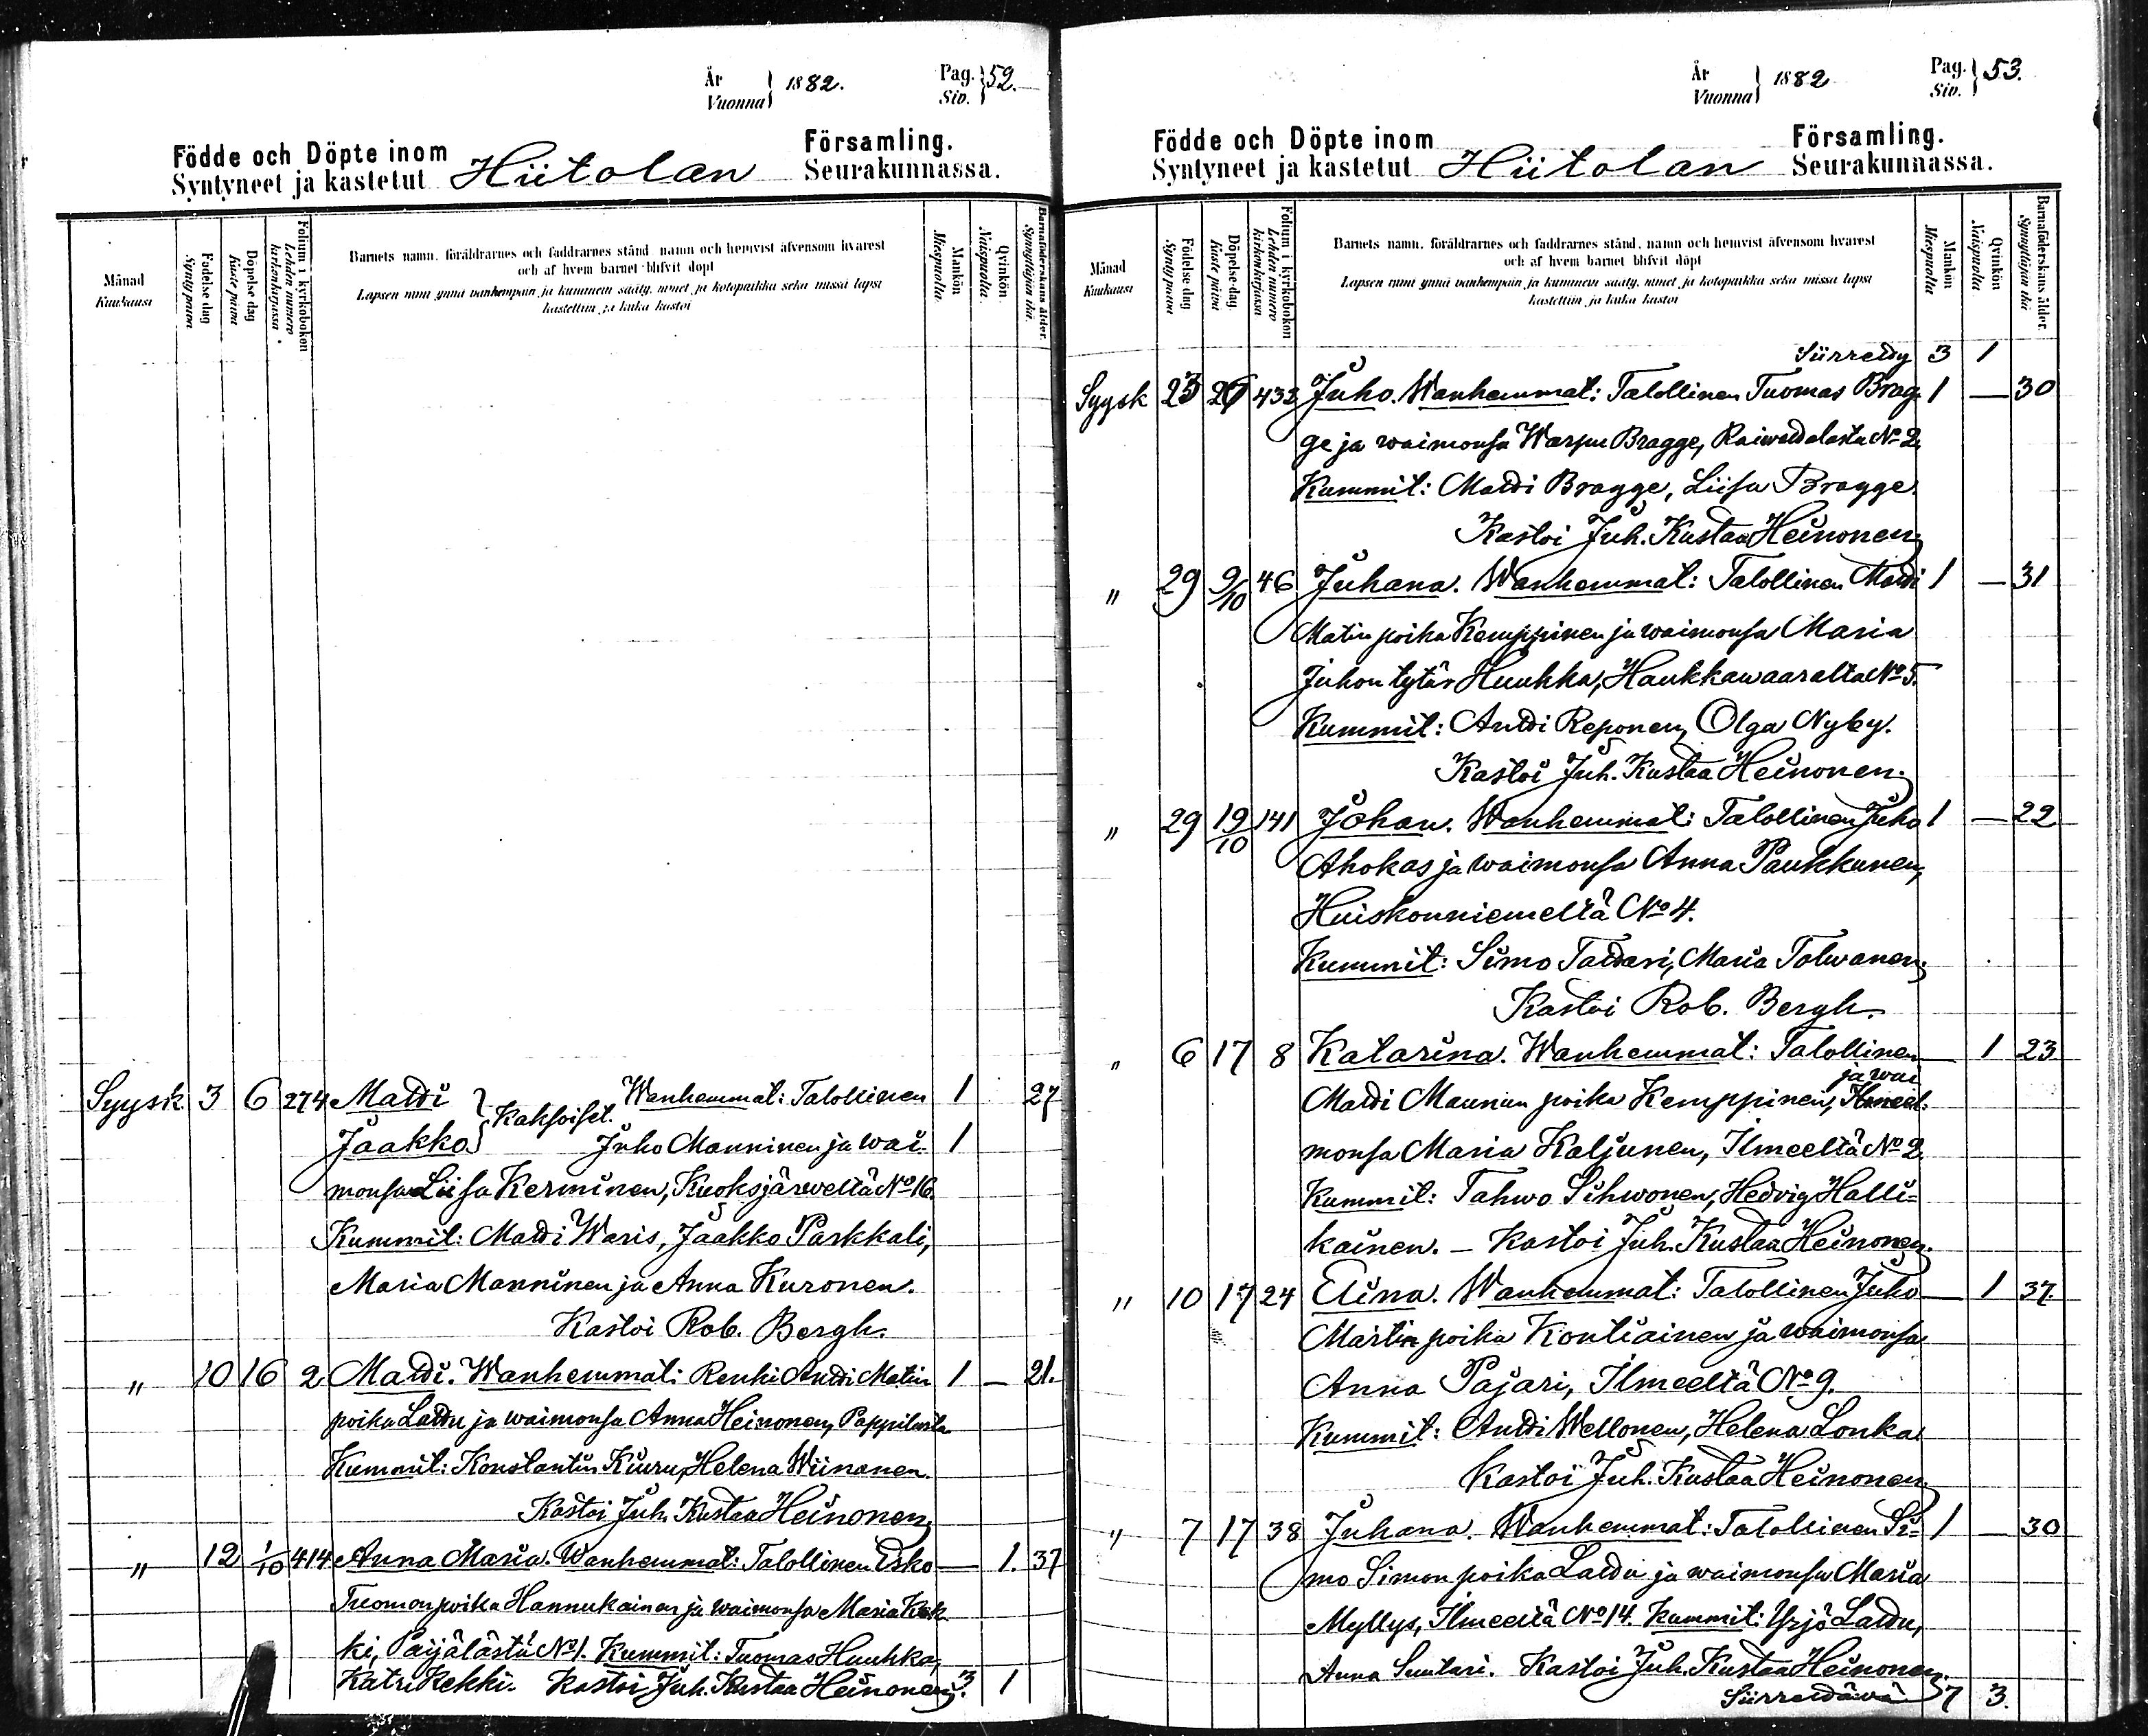 År
Vuonna } 1882.
Pag.
Siv. } 52.
Födde och Döpte inom
Syntyneet ja kastetut Hiitolan
Församling.
Seurakunnassa.
Månad
Kuukausi
Födelse dag
Syntypäivä
Döpelse dag
Kaste päivä
Folium i kyrkobokon
Lehden numero
kirkonkirjassa
Barnets namn, föräldrarnes och faddrarnes stånd, namn och hemvist äfvensom hvarest
och af hvem barnet blifvit döpt
Lapsen nimi ynnä vanhempain ja kummein sääty, nimet ja kotopaikka sekä missä lapsi
kastettiin ja kuka kastoi
Mankön
Miespuolia
Qvinkön
Naispuolia
Barnaföderskans ålder.
Synnyttäjän ikä.
Syysk. 3 6 274 Matti } Kaksoiset. Wanhemmat: Talollinen 1 27
Jaakko Juho Manninen ja wai- 1
monsa Liisa Kerminen, Kuoksjärweltä No 16.
Kummit: Matti Waris, Jaakko Parkkali,
Maria Manninen ja Anna Kuronen.
Kastoi Rob. Bergh.
" 10 16 2 Matti. Wanhemmat: Renki Antti Matin 1 — 21.
poika Lattu ja waimonsa Anna Heinonen, Pappilasta
Kummit: Konstantin Kiuru, Helena Wiinanen.
Kastoi Juh. Kustaa Heinonen.
" 12 1/10 414 Anna Maria. Wanhemmat: Talollinen Esko — 1. 37
Tuomon poika Hannukainen ja waimonsa Maria Kek
ki, Päijälästä No 1. Kummit: Tuomas Huuhka,
Katri Kekki. Kastoi Juh. Kustaa Heinonen. 3 1
År
Vuonna } 1882
Pag.
Siv. } 53.
Födde och Döpte inom
Syntyneet ja kastetut Hiitolan
Församling.
Seurakunnassa.
Månad
Kuukausi
Födelse dag
Syntypäivä
Döpelse-dag.
Kaste päivä
Folium i kyrkobokon
Lehden numero
kirkonkirjassa
Barnets namn, föräldrarnes och faddrarnes stånd, namn och hemvist äfvensom hvarest
och af hvem barnet blifvit döpt
Lapsen nimi ynnä vanhempain ja kummein sääty, nimet ja kotopaikka sekä missä lapsi
kastettiin ja kuka kastoi
Mankön
Miespuolia
Qvinkön
Naispuolia
Barnaföderskans ålder.
Synnyttäjän ikä
Siirretty 3 1
Syysk 23 26 433 Juho. Wanhemmat: Talollinen Tuomas Brag- 1 — 30
ge ja waimonsa Warpu Bragge, Raiwattalasta No 2.
Kummit: Matti Bragge, Liisa Bragge.
Kastoi Juh. Kustaa Heinonen.
" 29 9/10 46 Juhana. Wanhemmat: Talollinen Matti 1 — 31
Matin poika Kemppinen ja waimonsa Maria
Juhon tytär Huuhka, Haukkawaaralta No 5.
Kummit: Antti Reponen, Olga Nyby.
Kastoi Juh. Kustaa Heinonen.
" 29 19/10 141 Johan. Wanhemmat: Talollinen Juho 1 — 22
Ahokas ja waimonsa Anna Paukkunen,
Huiskonniemeltä No 4.
Kummit: Simo Tattari, Maria Tolwanen.
Kastoi Rob. Bergh.
" 6 17 8 Katarina. Wanhemmat: Talollinen — 1 23
ja wai
Matti Maunun poika Kemppinen,
monsa Maria Kaljunen, Ilmeeltä No 2.
Kummit: Tahwo Sihwonen, Hedvig Halli-
kainen. – Kastoi Juh. Kustaa Heinonen.
" 10 17 24 Elina. Wanhemmat: Talollinen Juho — 1 37.
Martin poika Kontiainen ja waimonsa
Anna Pajari, Ilmeeltä No 9.
Kummit: Antti Wellonen, Helena Lonka
Kastoi Juh. Kustaa Heinonen.
" 7 17 38 Juhana. Wanhemmat: Talollinen Si- 1 — 30
mo Simon poika Lattu ja waimonsa Maria
Myllys, Ilmeeltä No 14. Kummit: Yrjö Lattu,
Anna Suutari. Kastoi Juh. Kustaa Heinonen.
Siirrettäwä 7 3.